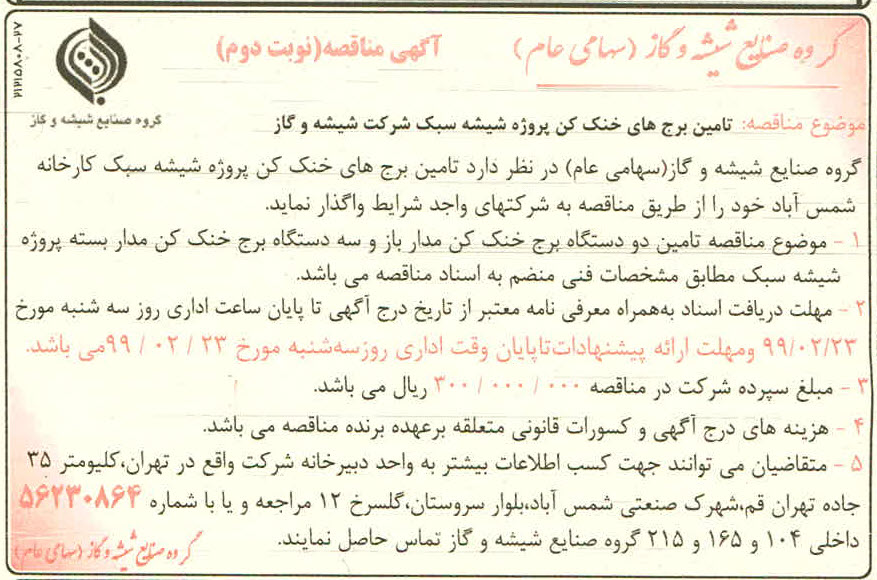 گروه صنایع شیشه و گاز (سهامی عام)
آگهی مناقصه(نوبت دوم)
گروه صنایع شیشه و گاز
موضوع مناقصه: تامین برج های خنک کن پروژه شیشه سبک شرکت شیشه و گاز
گروه صنایع شیشه و گاز(سهامی عام) در نظر دارد تامین برج های خنک کن پروژه شیشه سبک کارخانه
شمس آباد خود را از طریق مناقصه به شرکتهای واجد شرایط واگذار نماید.
۱ - موضوع مناقصه تامین دو دستگاه برج خنک کن مدار باز و سه دستگاه برج خنک کن مدار بسته پروژه
شیشه سبک مطابق مشخصات فنی منضم به اسناد مناقصه می باشد.
۲ - مهلت دریافت اسناد به‌همراه معرفی نامه معتبر از تاریخ درج آگهی تا پایان ساعت اداری روز سه شنبه مورخ
۹۹/۰۲/۲۳ ومهلت ارائه پیشنهادات‌تاپایان وقت اداری روزسه‌شنبه مورخ ۲۳ / ۰۲ / ۹۹می باشد.
۳ - مبلغ سپرده شرکت در مناقصه ۳۰۰/۰۰۰/۰۰۰ ریال می باشد.
۴ - هزینه های درج آگهی و کسورات قانونی متعلقه برعهده برنده مناقصه می باشد.
۵ - متقاضیان می توانند جهت کسب اطلاعات بیشتر به واحد دبیرخانه شرکت واقع در تهران،کلیومتر ۳۵
جاده تهران قم،شهرک صنعتی شمس آباد،بلوار سروستان،گلسرخ ۱۲ مراجعه و یا با شماره ۵۶۲۳۰۸۶۴
داخلی ۱۰۴ و ۱۶۵ و ۲۱۵ گروه صنایع شیشه و گاز تماس حاصل نمایند.
گروه صنایع شیشه و گاز (سهامی عام)